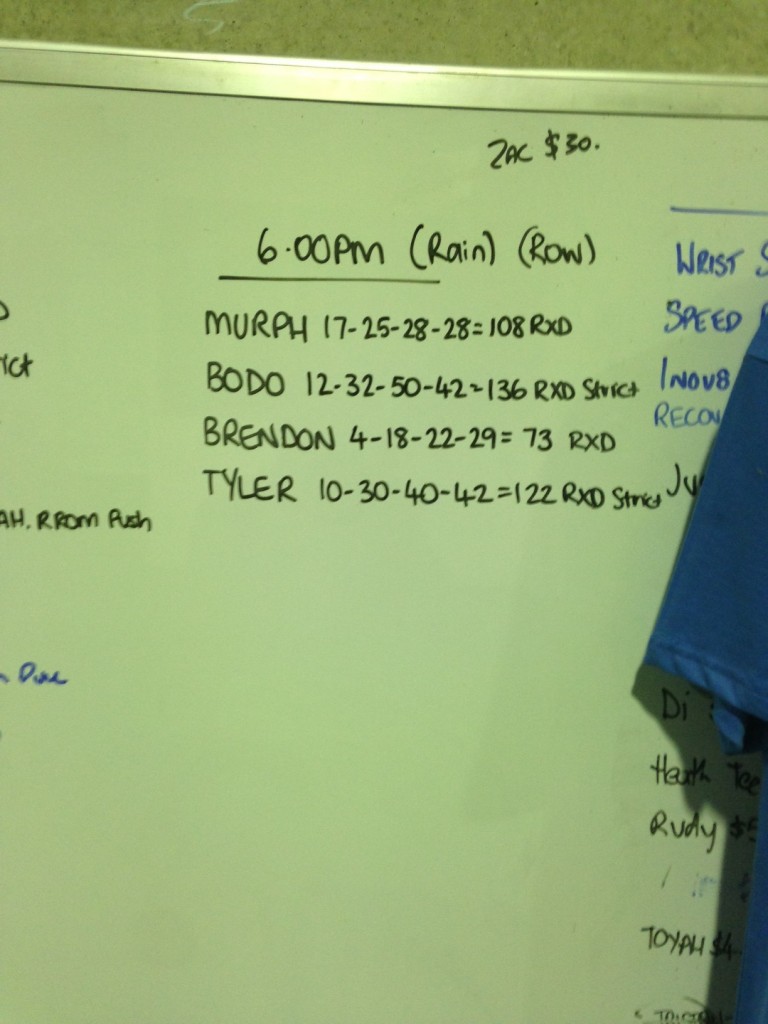 ZAC $30.
6.00PM (Rain) (Row)
MURPH 17-25-28-28=108 RXD
BODO 12-32-50-42=136 RXD Strict
BRENDON 4-18-22-29= 73 RXD
TYLER 10-30-40-42=122 RXD Strict
AH. R ROM Push
WRIST S
SPEED
INOV8
RECOV
Di
Heath Tee
Rudy $5
TOYAH $4